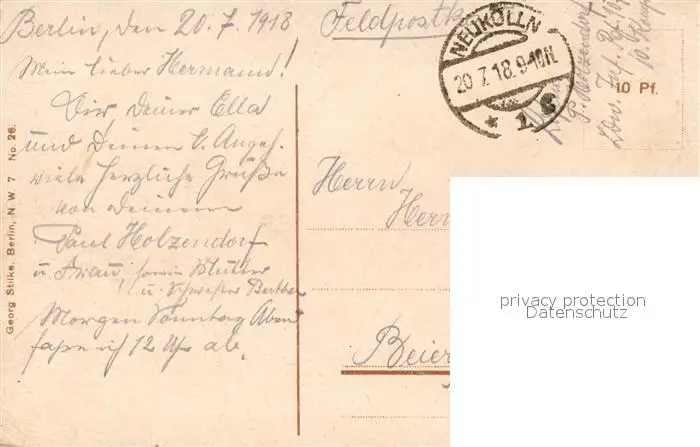 Berlin, den 20.7.1918
Mein lieber Hermann!
Dir, Deiner Ella
und Deinen l. Angeh.
viele herzliche Grüße
von Deinem
Paul Holzendorf
u. Frau, sowie Mutter
u. Schwester Berta
Morgen Sonntag Abend
fahre ich 12 Uhr ab.
Georg Stilke, Berlin, N. W. 7 No. 26.
Feldpostk
NEUKÖLLN
20.7.18.9-10N.
* 1
10 Pf.
Holzendorf
Ldw. Inf. Rgt.
Herrn
Her
Beier
privacy protection
Datenschutz